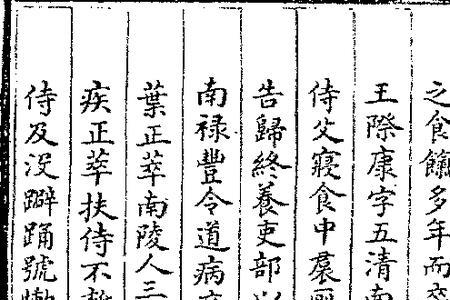 之食餼多年而
王際康字五清南
侍父寢食中裠
告歸終養吏部
南祿豐令道病
葉正萃南陵人三
疾正萃扶侍不
侍及没躃踊號